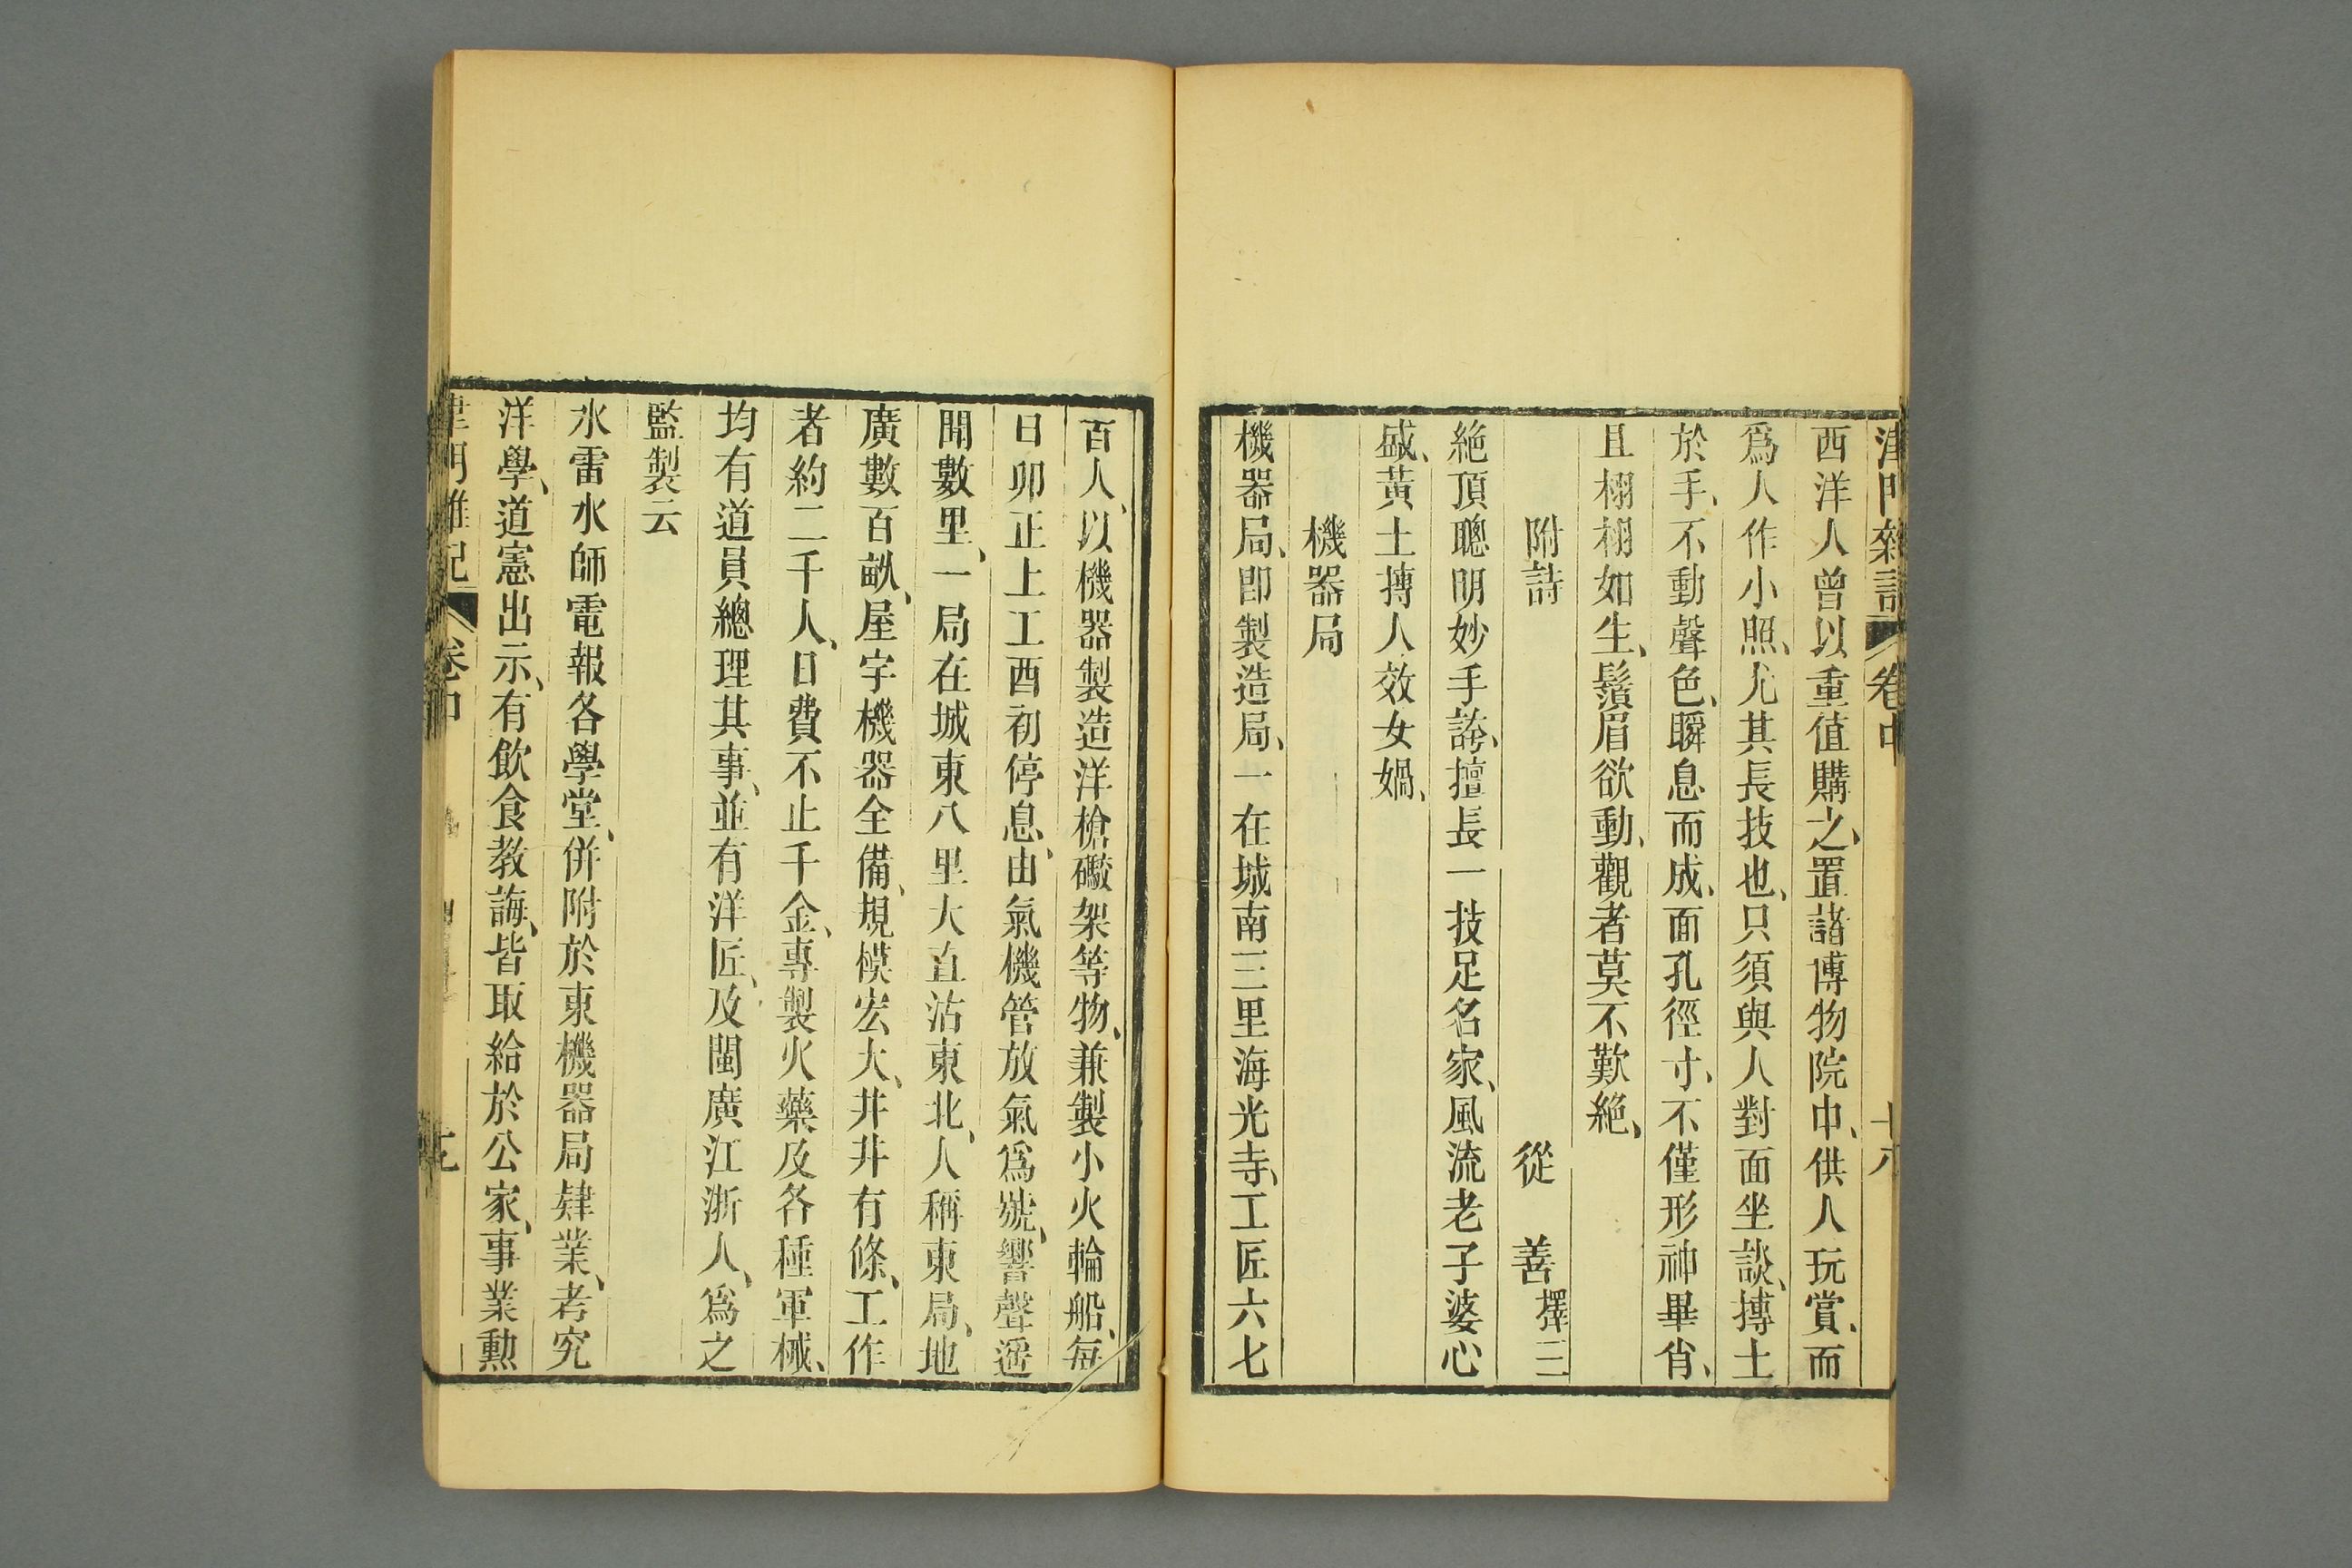 津門雜記 卷中 十六
西洋人曾以重值購之、置諸博物院中、供人玩賞、而
爲人作小照、尤其長技也、只須與人對面坐談、摶土
於手、不動聲色、瞬息而成、面孔徑寸、不僅形神畢肖、
且栩栩如生、鬚眉欲動、觀者莫不歎絕、
附詩 從善擇三
絕頂聰明妙手誇、擅長一技足名家、風流老子婆心
盛、黃土摶人效女媧、
機器局
機器局、卽製造局、一在城南三里海光寺、工匠六七
百人、以機器製造洋槍礮架等物、兼製小火輪船、每
日卯正上工酉初停息、由氣機管放氣爲號、響聲遥
聞數里、一局在城東八里大直沽東北、人稱東局、地
廣數百畝、屋宇機器全備、規模宏大、井井有條、工作
者約二千人、日費不止千金、專製火藥及各種軍械、
均有道員總理其事、並有洋匠、及閩廣江浙人、爲之
監製云
水雷水師電報各學堂、併附於東機器局肄業、考究
洋學、道憲出示、有飲食教誨、皆取給於公家、事業勳
津門雜記 卷中